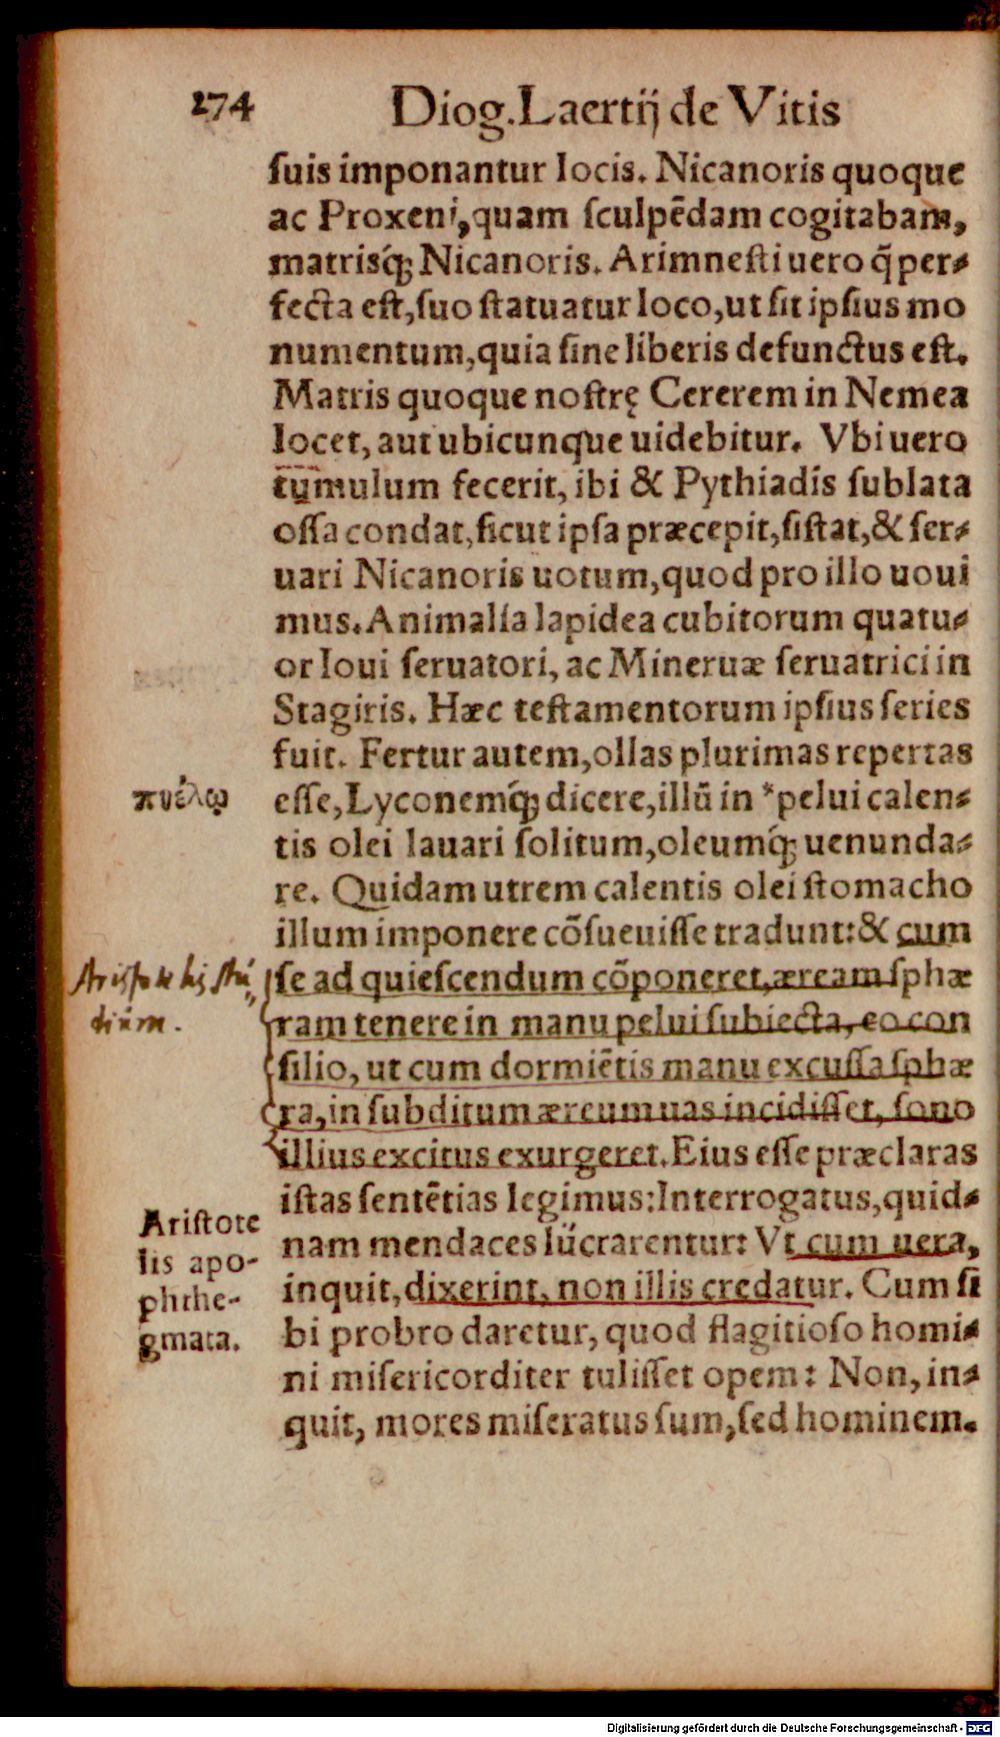 274 Diog. Laertij de Vitis
suis imponantur locis. Nicanoris quoque
ac Proxeni, quam sculpēdam cogitabam,
matrisq́; Nicanoris. Arimnesti uero q̃ per-
fecta est, suo statuatur loco, ut sit ipsius mo
numentum, quia sine liberis defunctus est.
Matris quoque nostrę Cererem in Nemea
locet, aut ubicunque uidebitur. Vbi uero
tumulum fecerit, ibi & Pythiadis sublata
ossa condat, sicut ipsa præcepit, sistat, & ser-
uari Nicanoris uotum, quod pro illo uoui
mus. Animalia lapidea cubitorum quatu-
or Ioui seruatori, ac Mineruæ seruatrici in
Stagiris. Hæc testamentorum ipsius series
fuit. Fertur autem, ollas plurimas repertas
πυέλῳ
esse, Lyconemq́; dicere, illū in *pelui calen-
tis olei lauari solitum, oleumq́; uenunda-
re. Quidam utrem calentis olei stomacho
illum imponere cōsueuisse tradunt: & cum
Aristotelis stu
dium.
se ad quiescendum cōponeret, æream sphæ
ram tenere in manu pelui subiecta, eo con
silio, ut cum dormiētis manu excussa sphæ
ra, in subditum æreum uas incidisset, sono
illius excitus exurgeret. Eius esse præclaras
istas sentētias legimus: Interrogatus, quid-
Aristote
lis apo-
phthe-
gmata.
nam mendaces lucrarentur: Vt cum uera,
inquit, dixerint, non illis credatur. Cum si
bi probro daretur, quod flagitioso homi-
ni misericorditer tulisset opem: Non, in-
quit, mores miseratus sum, sed hominem.
Digitalisierung gefördert durch die Deutsche Forschungsgemeinschaft - DFG